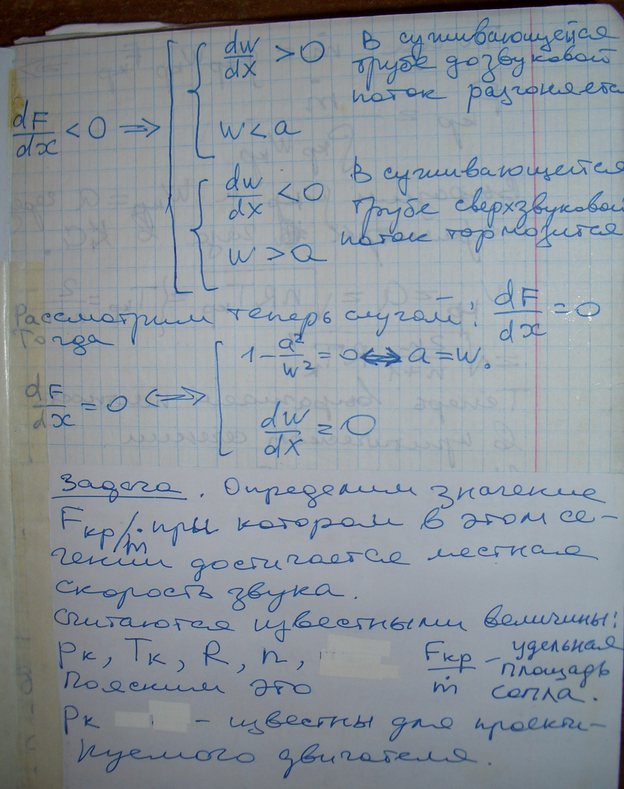 dw/dx > 0 В суживающейся
трубе дозвуковой
поток разгоняется
dF/dx < 0 ⇒ w < a
dw/dx < 0 В суживающейся
трубе сверхзвуковой
w > a поток тормозится
Рассмотрим теперь случай: dF/dx = 0
Тогда
1 - a²/w² = 0 ⇔ a = w.
dF/dx = 0 ⇔
dw/dx = 0
Задача. Определим значение
Fкр/ṁ при котором в этом се-
чении достигается местная
скорость звука.
Считаются известными величины:
pк, Tк, R, n, Fкр/ṁ - удельная
площадь
Поясним это сопла.
pк - известны для проекти-
руемого двигателя.